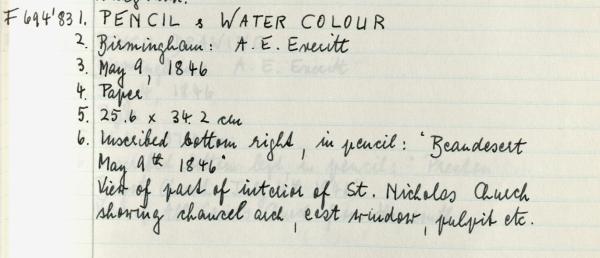 F694'83 1. PENCIL & WATER COLOUR
2. Birmingham: A. E. Everitt
3. May 9, 1846
4. Paper
5. 25.6 x 34.2 cm
6. Inscribed bottom right, in pencil: 'Beaudesert
May 9th 1846'
View of part of interior of St. Nicholas Church
showing chancel arch, east window, pulpit etc.